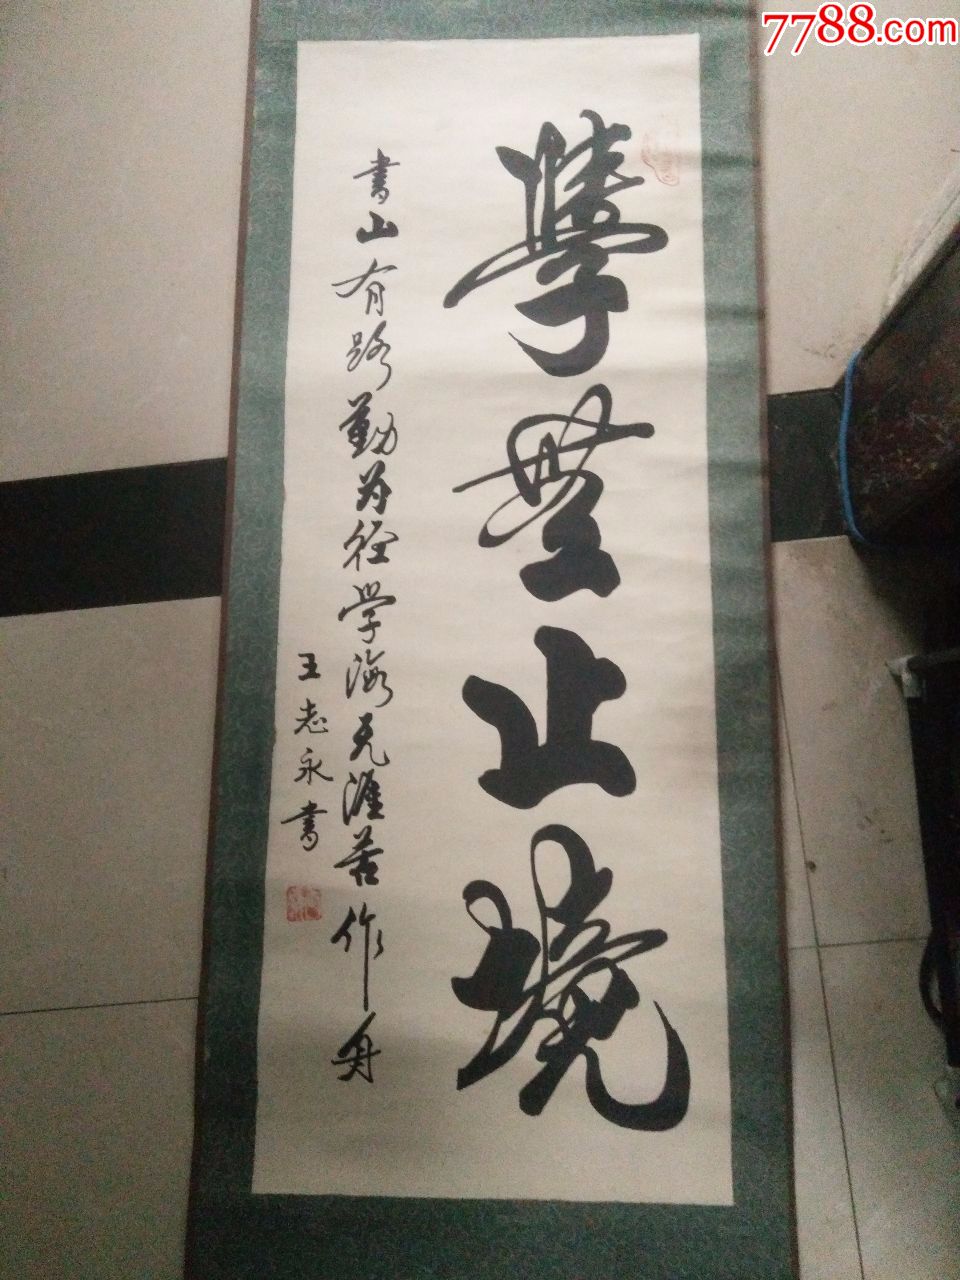 7788.com
學無止境
書山有路勤为径学海无涯苦作舟
王志永書